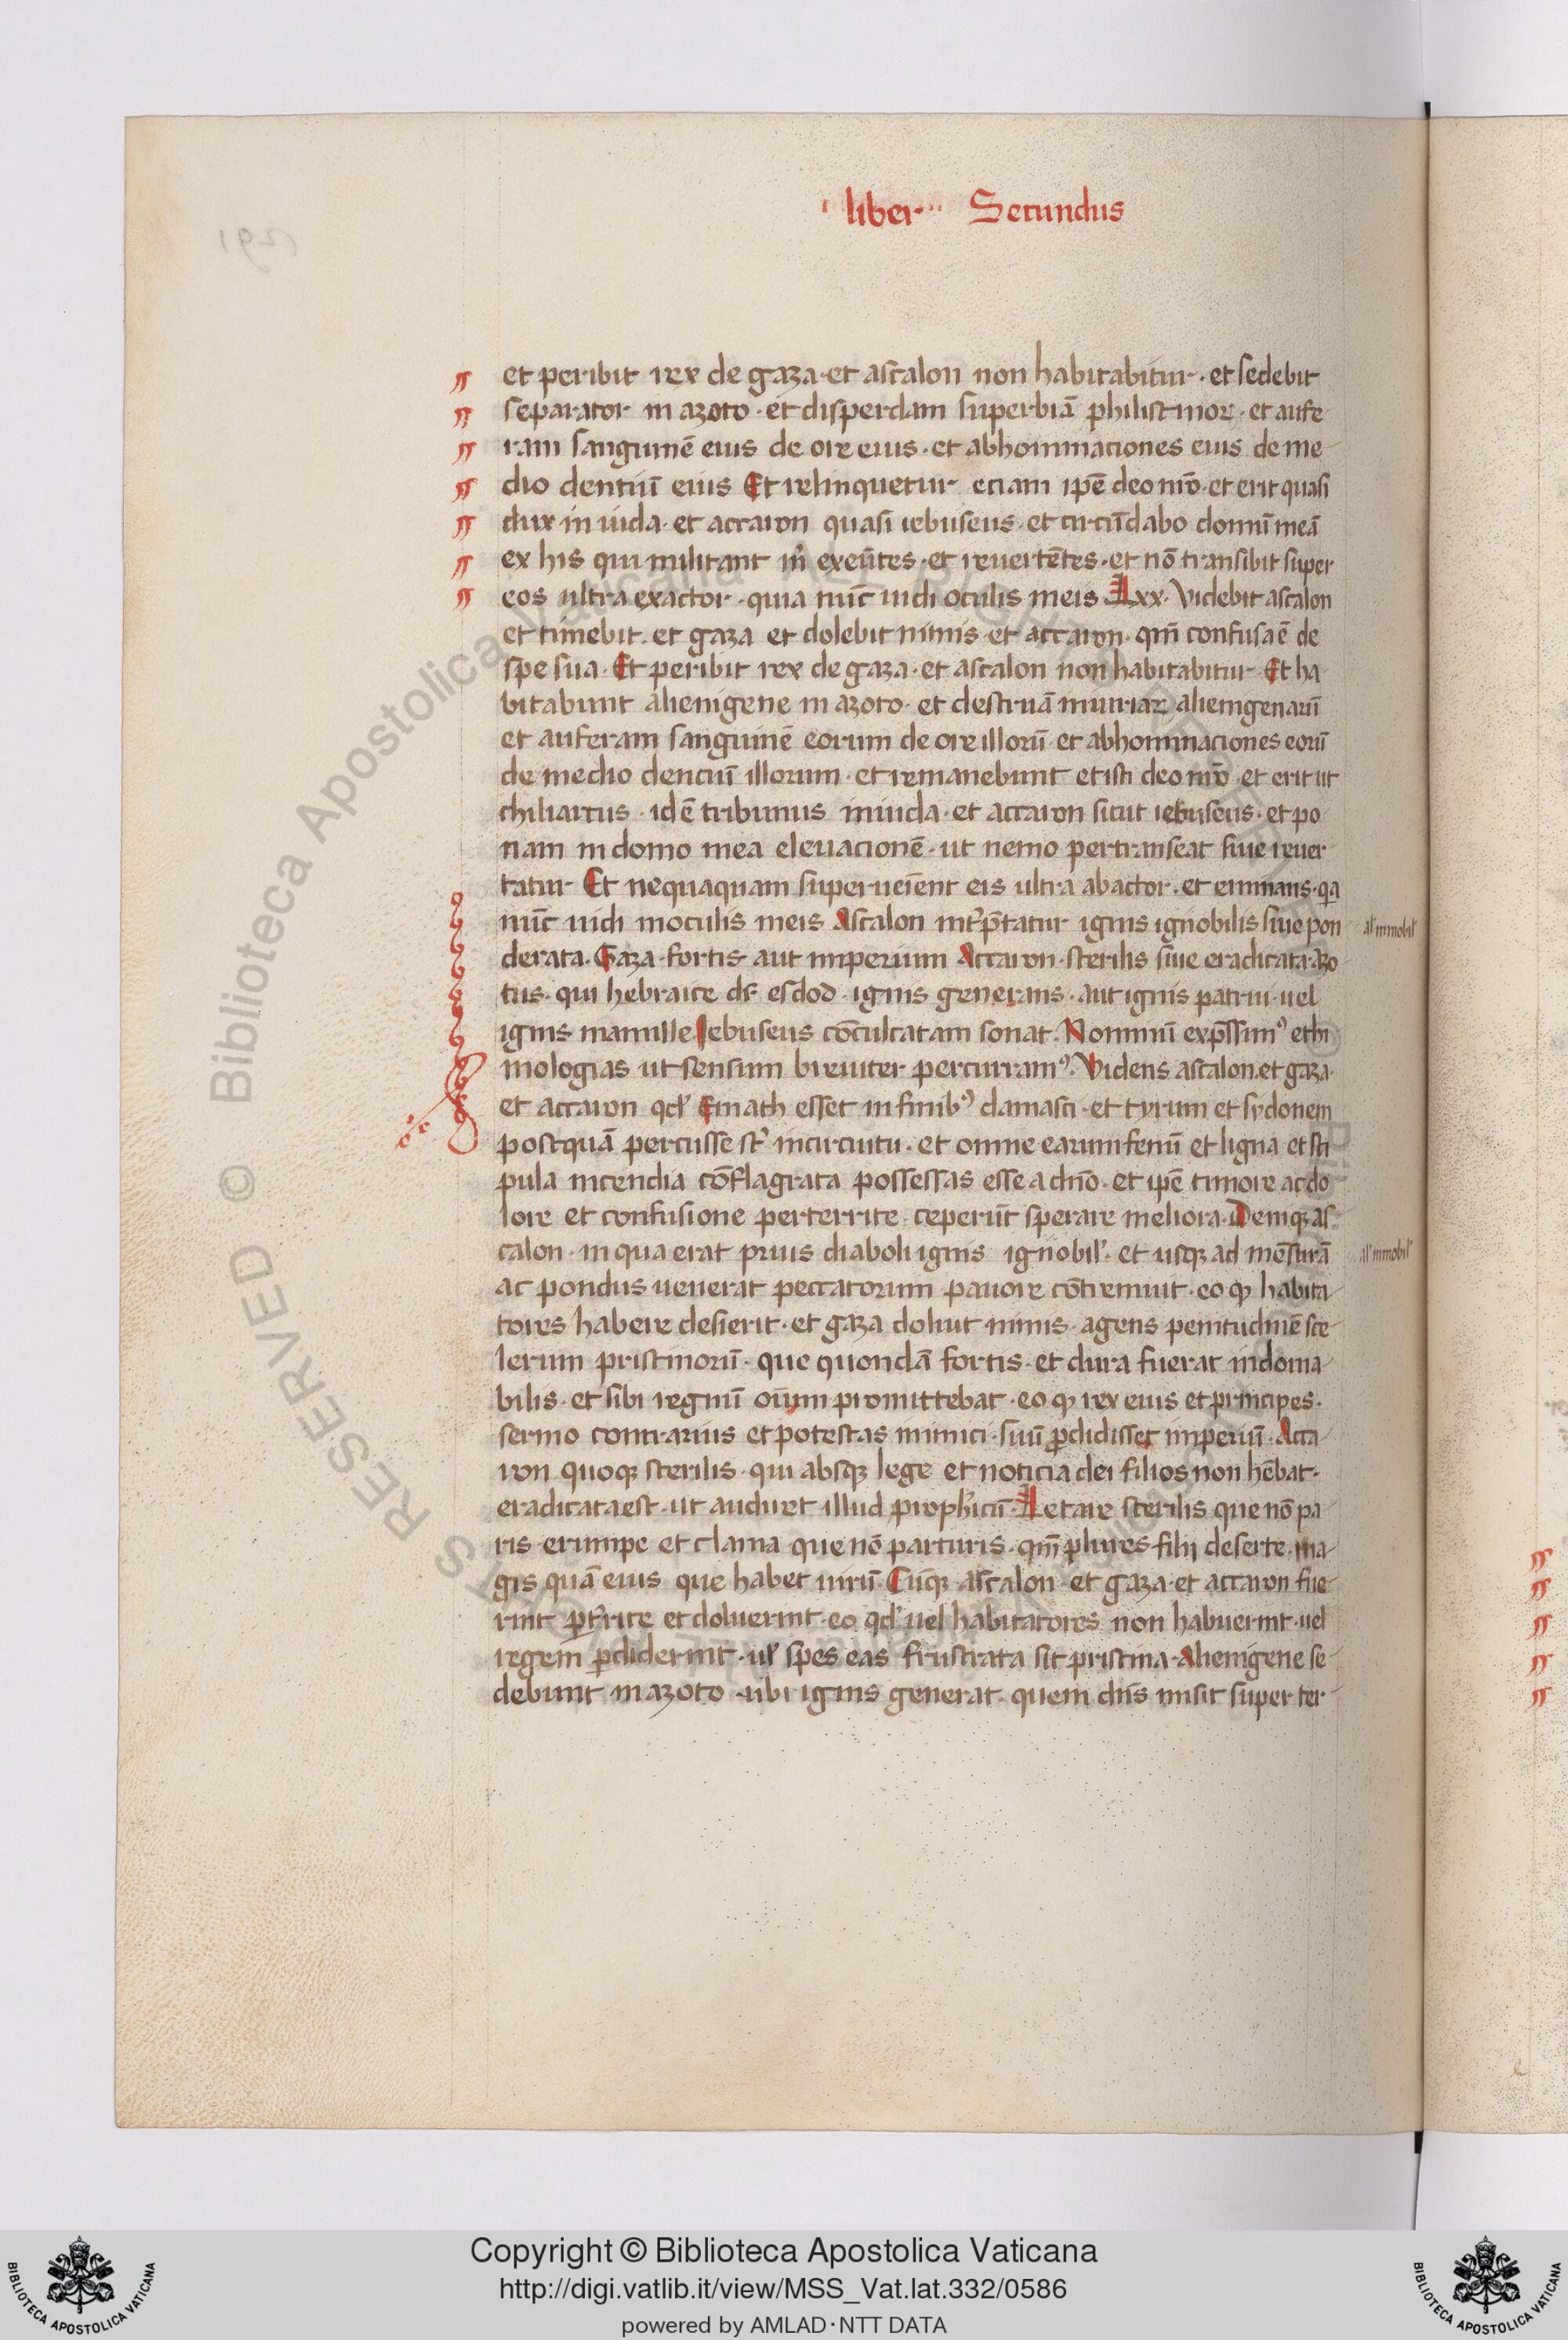 liber Secundus
et peribit rex de gaza · et ascalon non habitabitur · et sedebit
separator in azoto · et disperdam superbiā philistinoꝝ · et aufe
ram sanguinē eius de ore eius · et abhominaciones eius de me
dio dentiū eius Et relinquetur eciam ipē deo nr̄o · et erit quasi
dux in iuda · et accaron quasi iebuseus · et circūdabo domū meā
ex his qui militant m̄ exeūtes · et reuertētes · et nō transibit super
eos ultra exactor · quia nūc uidi oculis meis Lxx · Videbit ascalon
et timebit · et gaza et dolebit nimis · et accaron · qm̄ confusa ē de
spe sua · Et peribit rex de gaza · et ascalon non habitabitur · Et ha
bitabunt alienigene in azoto · et destruā iniurias alienigenarū
et auferam sanguinē eorum de ore illorū · et abhominaciones eorū
de medio denciū illorum · et remanebunt et isti deo nr̄o · et erit ut
chiliarcus · id ē tribunus in iuda · et accaron sicut iebuseus · et po
nam in domo mea eleuacionē · ut nemo pertranseat siue reuer
tatur Et nequaquam superueient eis ultra abactor · et eminans · qa
nūc uidi in oculis meis Ascalon int̄p̄tatur ignis ignobilis siue pon
al' immobil'
derata · Gaza · fortis aut imperium Accaron · sterilis siue eradicata · Azo
tus · qui hebraice dr̄ esdod · ignis generans · aut ignis patrui · uel
ignis mamille Iebuseus cōculcatam sonat · Nominū exp̄ssimꝰ ethi
mologias ut sensum breuiter percurramꝰ · Videns ascalon · et gaza ·
et accaron qd' Emath esset in finibꝰ damasci · et tyrum et sydonem
postquā percusse st̄ in circuitu · et omne earum fenū et ligna et sti
pula incendia cōflagrata possessas esse a dn̄o · et ipē timore ac do
lore et confusione perterrite · ceperūt sperare meliora · Deniqꝫ as
calon · in qua erat prius diaboli ignis ignobil' · et usqꝫ ad mēsurā
al' immobil'
ac pondus uenerat peccatorum pauore cōtremuit · eo qꝫ habita
tores habere desierit · et gaza doluit nimis · agens penitudinē sce
lerum pristinorū · que quondā fortis · et dura fuerat indoma
bilis · et sibi regnū oīum promittebat · eo qꝫ rex eius et principes ·
sermo contrarius et potestas inimici · suū ꝑdidisset imperiū · Acca
ron quoqꝫ sterilis · qui absqꝫ lege et noticia dei filios non hēbat ·
eradicata est · ut audiret illud prophīcū · Letare sterilis que nō pa
ris erumpe et clama que nō parturis · qm̄ plures filij deserte · ma
gis quā eius que habet uirū · Cūqꝫ ascalon · et gaza · et accaron fue
rint ꝑt̄rite et doluerint · eo qd' uel habitatores non habuerint · uel
regem ꝑdiderint · ul' spes eas frustrata sit pristina · Alienigene se
debunt in azoto · ubi ignis generat · quem dn̄s misit super ter
Copyright © Biblioteca Apostolica Vaticana
http://digi.vatlib.it/view/MSS_Vat.lat.332/0586
powered by AMLAD·NTT DATA